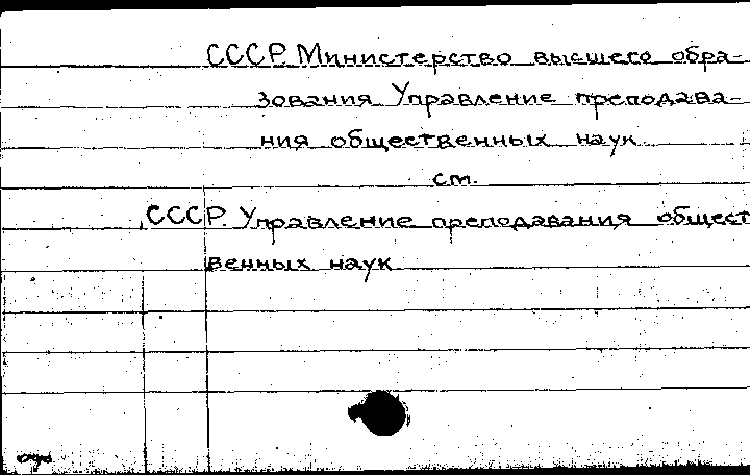 СССР. Министерство высшего обра-
зования Управление преподава-
ния общественных наук
см.
СССР. Управление преподавания общест
венных наук